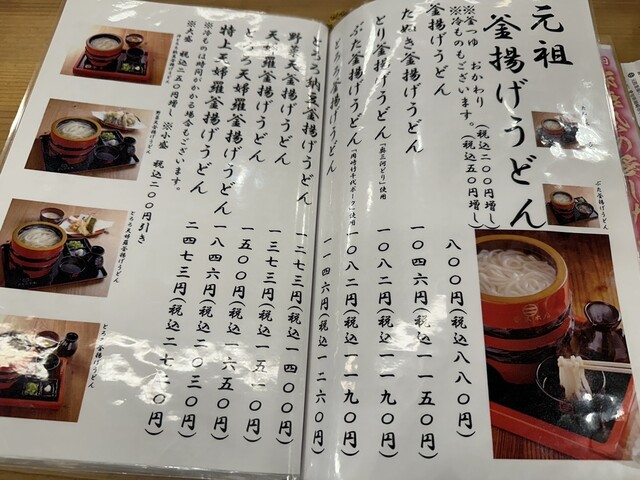 元祖
釜揚げうどん
※釜つゆ おかわり (税込二〇〇円増し)
※冷ものもございます。(税込五〇円増し)
釜揚げうどん 八〇〇円(税込八八〇円)
たぬき釜揚げうどん 一〇四六円(税込一一五〇円)
とり釜揚げうどん 「熟三河どり」使用 一〇八二円(税込一一九〇円)
ぶた釜揚げうどん 「岡崎竹千代ポーク」使用 一〇八二円(税込一一九〇円)
とろろ釜揚げうどん 一一四六円(税込一二六〇円)
とろろ納豆釜揚げうどん 一二七三円(税込一四〇〇円)
野菜天釜揚げうどん 一三七三円(税込一五一〇円)
天婦羅釜揚げうどん 一五〇〇円(税込一六五〇円)
とろろ天婦羅釜揚げうどん 一八四六円(税込二〇三〇円)
特上天婦羅釜揚げうどん 二四七三円(税込二七二〇円)
※冷ものは時間がかかる場合もございます。
※大盛 税込二五〇円増し ※小盛 税込二〇〇円引き
ぶた釜揚げうどん
とろろ天婦羅釜揚げうどん